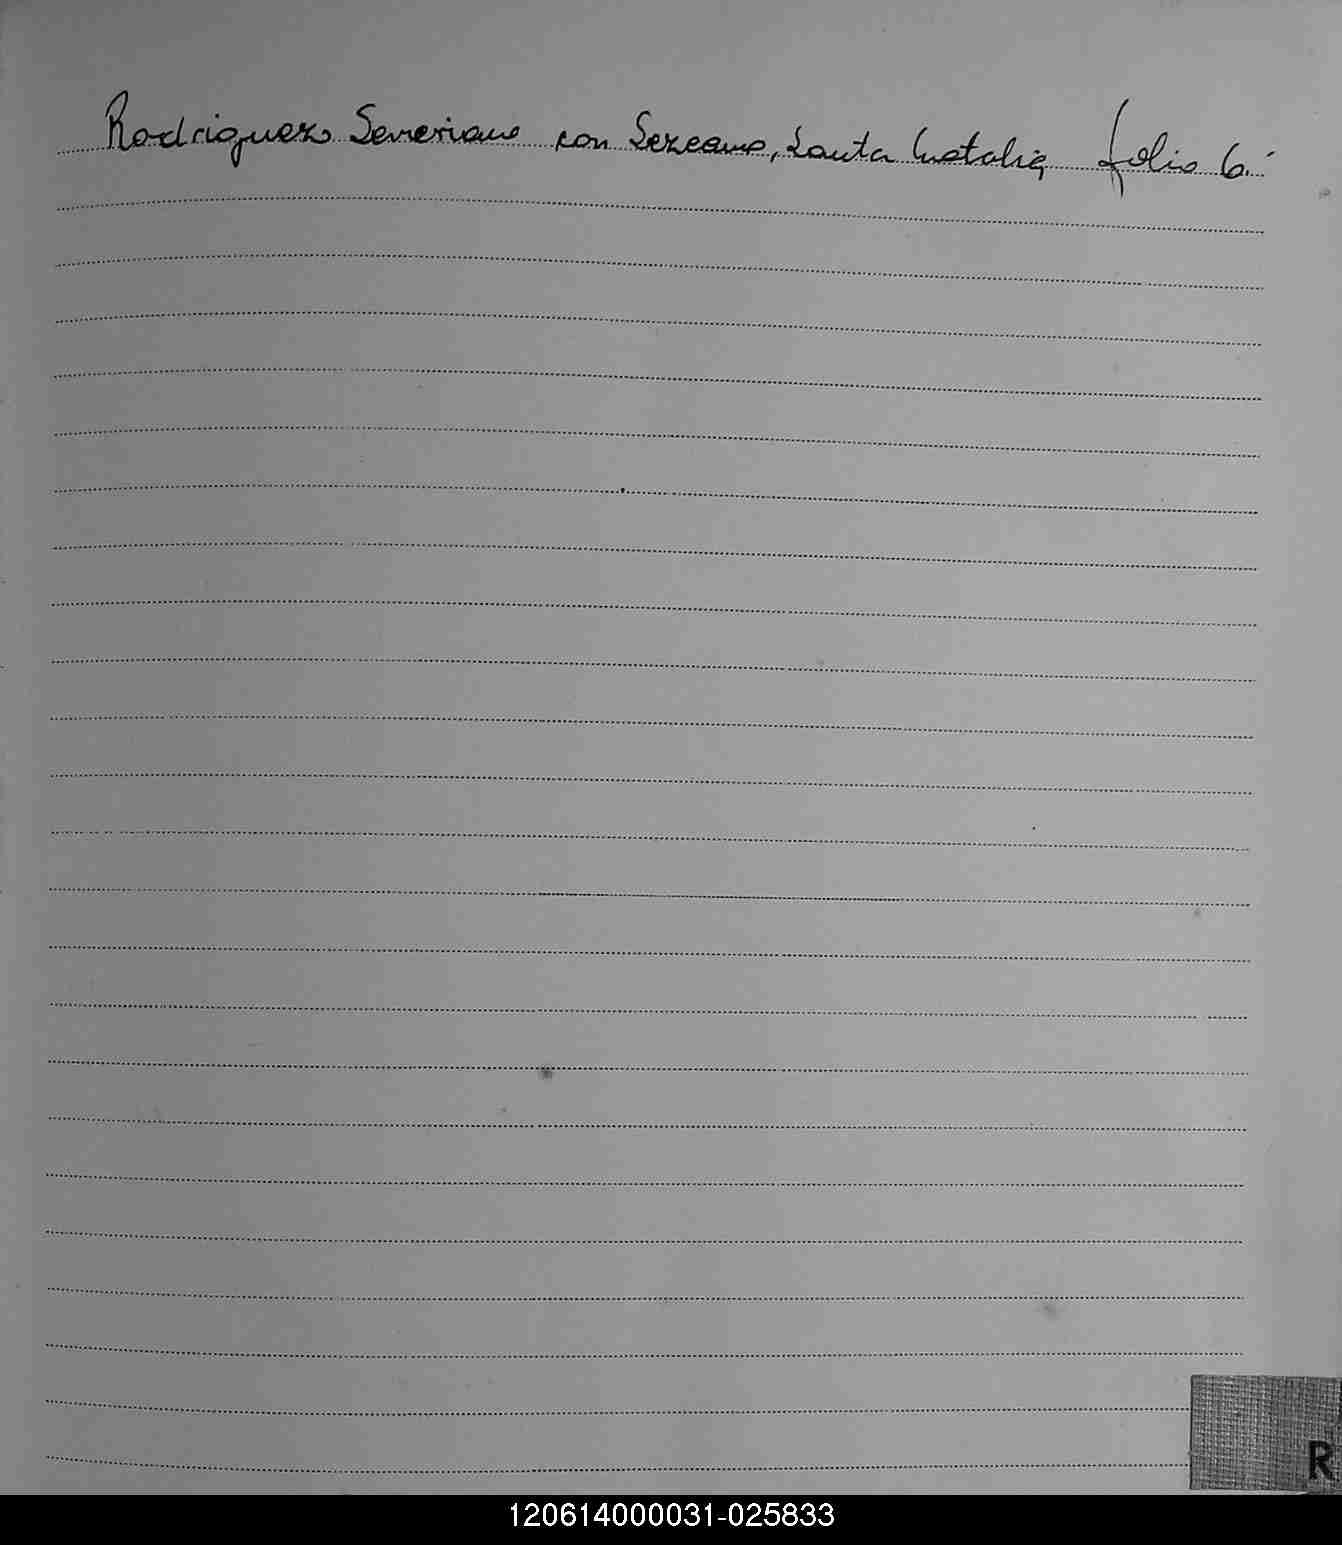 Rodriguez Severiano con Lezcano, Santa Natalia folio 6.
R
120614000031-025833